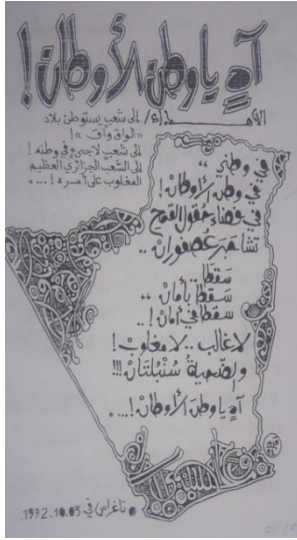 آهٍ يا وطن الأوطان!
الإهـــداء/ إلى شعبٍ يستوطن بلاد
«الواق واق»!
إلى شعبٍ لاجئٍ في وطنه!
إلى الشّعب الجزائري العظيم
المغلوب على أمره!...
في وطني،،
في وطن الأوطانْ!
في فضاء حقول القمح
تشاجر عُصفورانْ..
سَقطا..
سَقطا بأمانْ،،
سقطا في أمانْ!..
لا غالب.. لا مغلوب!
والضّحيةُ سُنْبُلتَانْ!!!
آهٍ يا وطنَ الأوطانْ!...
• تاغراس في 1992.10.03.